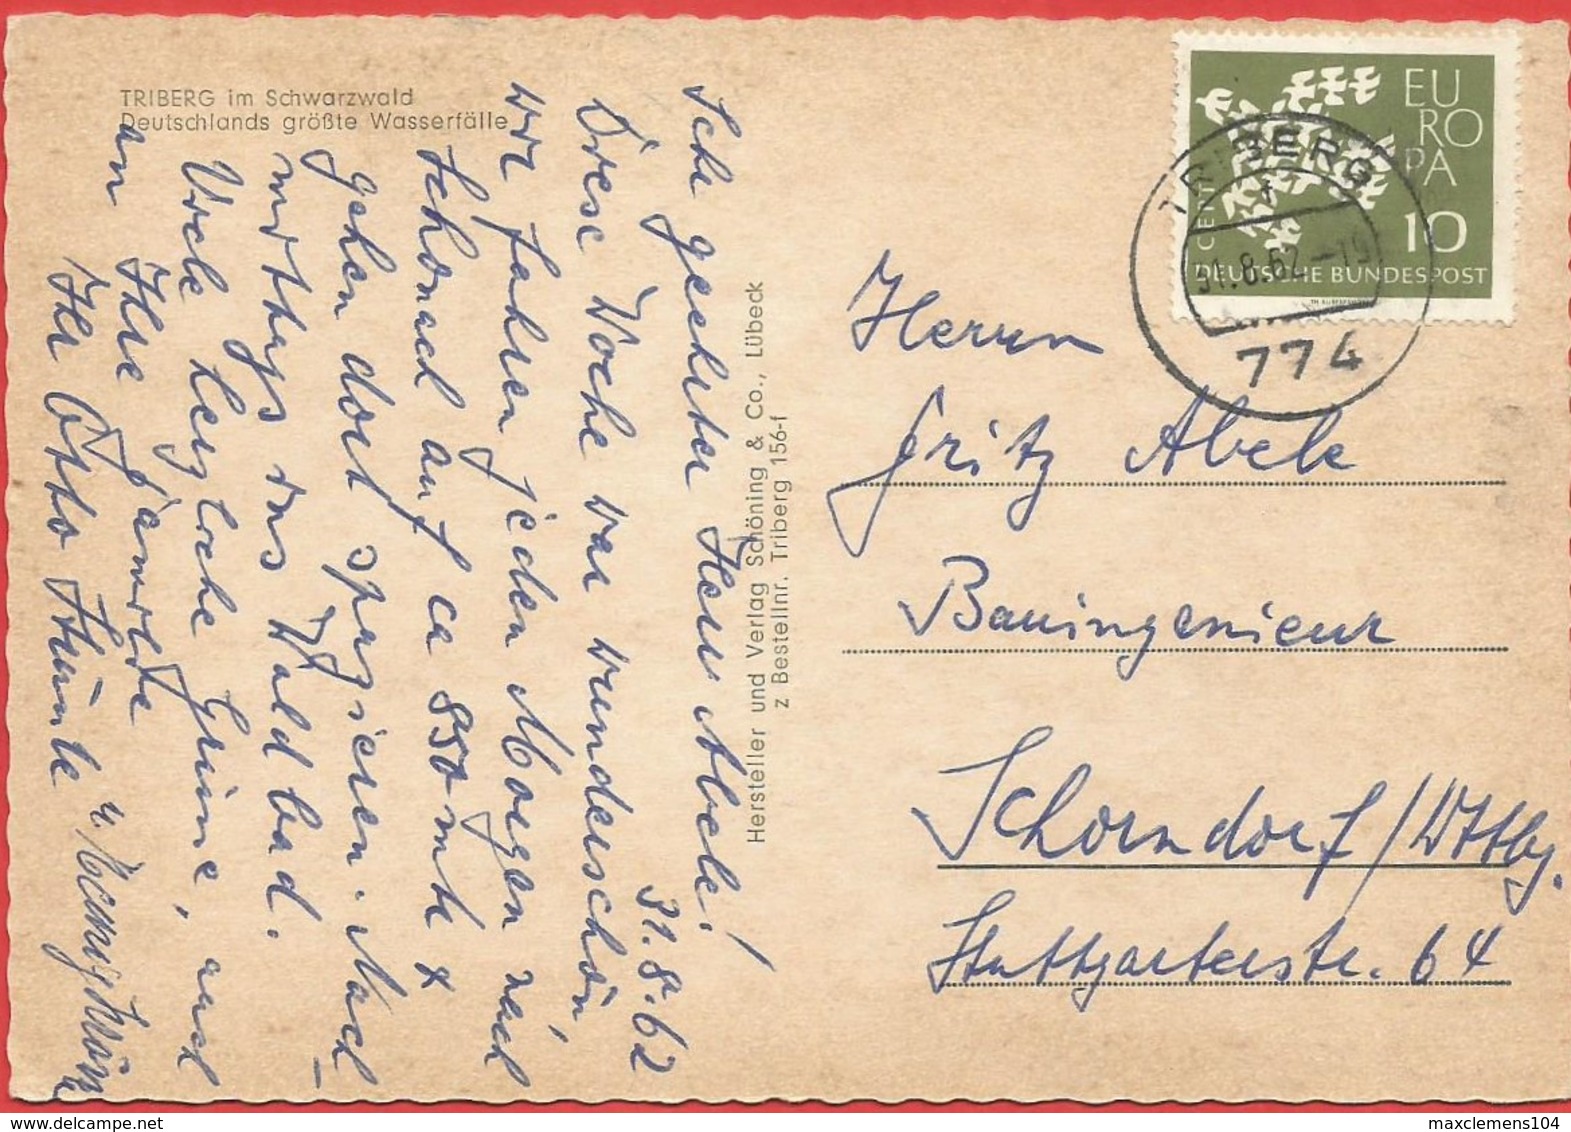 TRIBERG im Schwarzwald
Deutschlands größte Wasserfälle
31.8.62
Sehr geehrter Herr Abele!
Diese Woche war wunderschön,
wir fahren jeden Morgen nach
Schonach auf ca 850 mtr &
gehen dort spazieren. Nach-
mittags ins Waldbad.
Viele herzliche Grüße, auch
an Ihre Familie
Ihr Otto
Hersteller und Verlag Schöning & Co., Lübeck
z Bestellnr. Triberg 156-f
EU
RO
PA
CEPT
10
DEUTSCHE BUNDESPOST
TRIBERG
31.8.62-19
774
Herrn
Fritz Abele
Bauingenieur
Schorndorf/Wttbg.
Stuttgarterstr. 64
delcampe.net
maxclemens104